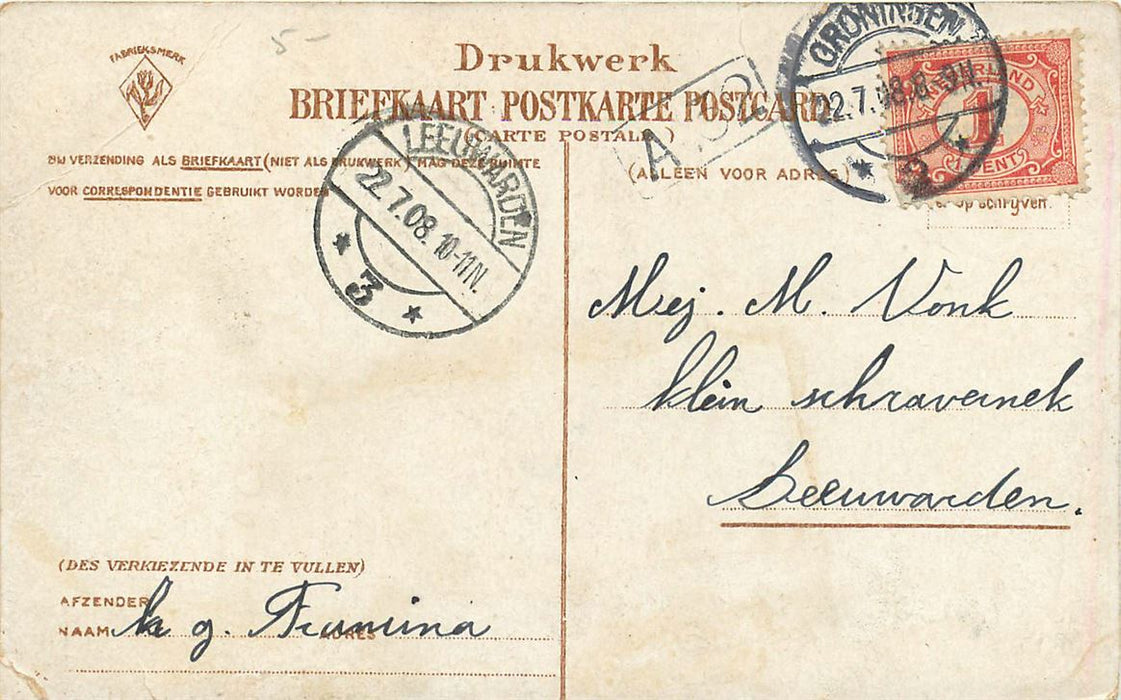 5-
FABRIEKSMERK
Drukwerk
BRIEFKAART POSTKARTE POSTCARD
(CARTE POSTALE)
BIJ VERZENDING ALS BRIEFKAART (NIET ALS DRUKWERK) MAG DEZE RUIMTE
VOOR CORRESPONDENTIE GEBRUIKT WORDEN
(ALLEEN VOOR ADRES)
GRONINGEN
22.7.08.8-9N.
NEDERLAND
1
1 CENT
LEEUWARDEN
22.7.08.10-11N.
3
op schrijven.
Mej. M. Vonk
klein schravernek
Leeuwarden.
(DES VERKIEZENDE IN TE VULLEN)
AFZENDER
NAAM k g. ADRES